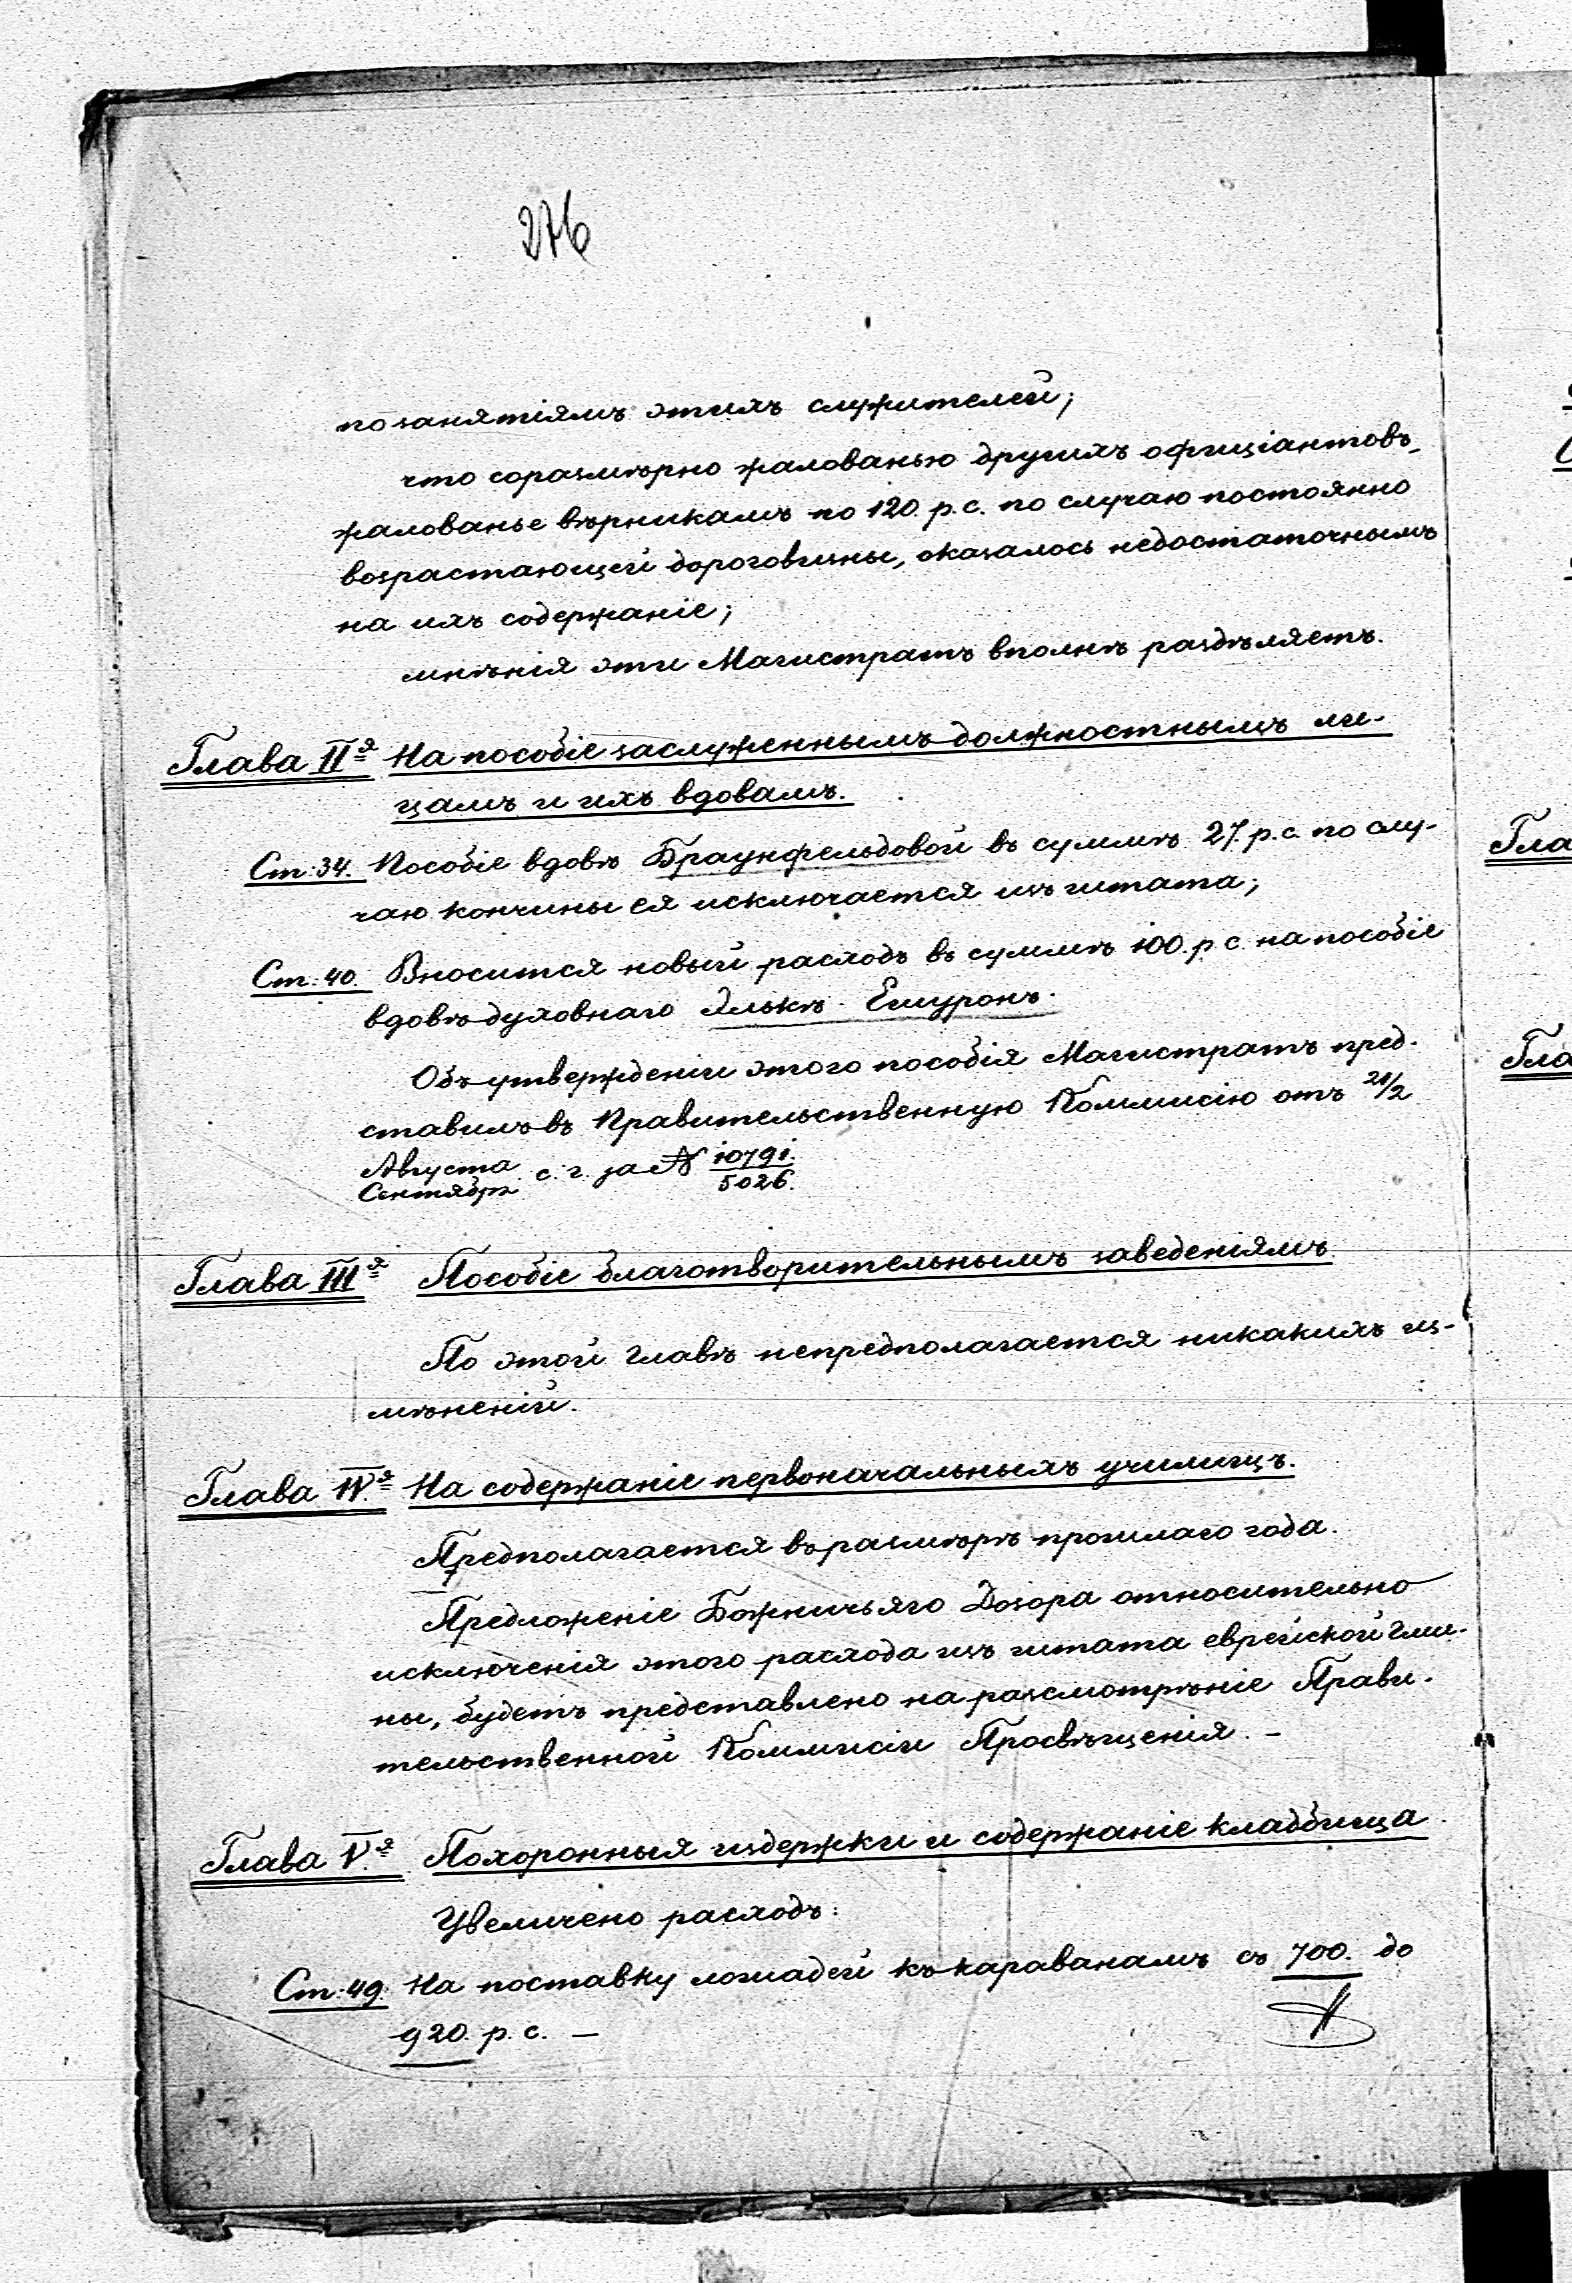 276
по занятіямъ этихъ служителей;
что соразмѣрно жалованью другихъ офиціантовъ
жалованье вѣрникамъ по 120. р. с. по случаю постоянно
возрастающей дороговизны, оказалось недостаточнымъ
на ихъ содержаніе;
мнѣнія эти Магистратъ вполнѣ раздѣляетъ.
Глава II я На пособіе заслуженнымъ должностнымъ ли-
цамъ и ихъ вдовамъ.
Ст: 34. Пособіе вдовѣ Браунфельдовой въ суммѣ 27. р. с. по слу-
чаю кончины ея исключается изъ штата;
Ст: 40. Вносится новый расходъ въ суммѣ 100. р. с. на пособіе
вдовѣ духовнаго
Объ утвержденіи этого пособія Магистратъ пред-
ставилъ въ Правительственную Коммисію отъ 21/2
Августа/Сентября с. г. за № 10791./5026.
Глава III я Пособіе благотворительнымъ заведеніямъ
По этой главѣ непредполагается никакихъ из-
мѣненій.
Глава IV. я На содержаніе первоначальныхъ училищъ.
Предполагается въ размѣрѣ прошлаго года.
Предложеніе Божничьяго Дозора относительно
исключенія этого расхода изъ штата еврейской гми-
ны, будетъ представлено на разсмотрѣніе Прави-
тельственной Коммисіи Просвѣщенія. -
Глава V. я Похоронныя издержки и содержаніе кладбища.
Увеличено расходъ:
Ст: 49. На поставку лошадей къ караванамъ съ 700. до
920. р. с. -
Гла
Гла